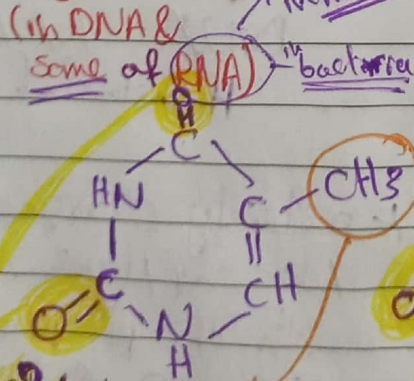 (in DNA &
Some of RNA) in bacteria
O
C
HN
C CH3
C
CH
O
N
H